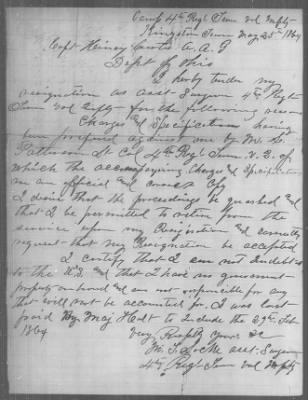 Camp 4th Regt Tenn vol Infty
Kingston Tenn May 25th 1864
Capt Henry Curtis A. A. G
Dept of Ohio
I hereby tender my
resignation as asst Surgeon 4th Regt
Tenn vol Infty for the following reasons
Charges and Specifications having
been prefered against me by M. L.
Patterson Lt Col 4th Regt Tenn V. I. of
which the accompanying Charges & Specifications
are an official and correct Copy
I desire that the proceedings be quashed and
that I be permitted to retire from the
service upon my resignation and earnestly
request that my Resignation be accepted
I certify that I am not Indebted
to the U.S. and that I have no government
property on hand and am not responsible for any
that will not be accounted for. I was last
paid By Maj Holt to Include the 29th Feb
1864
Very Respectfly yours &c
M. L. Locke asst. Surgeon
4th Regt Tenn vol Infty